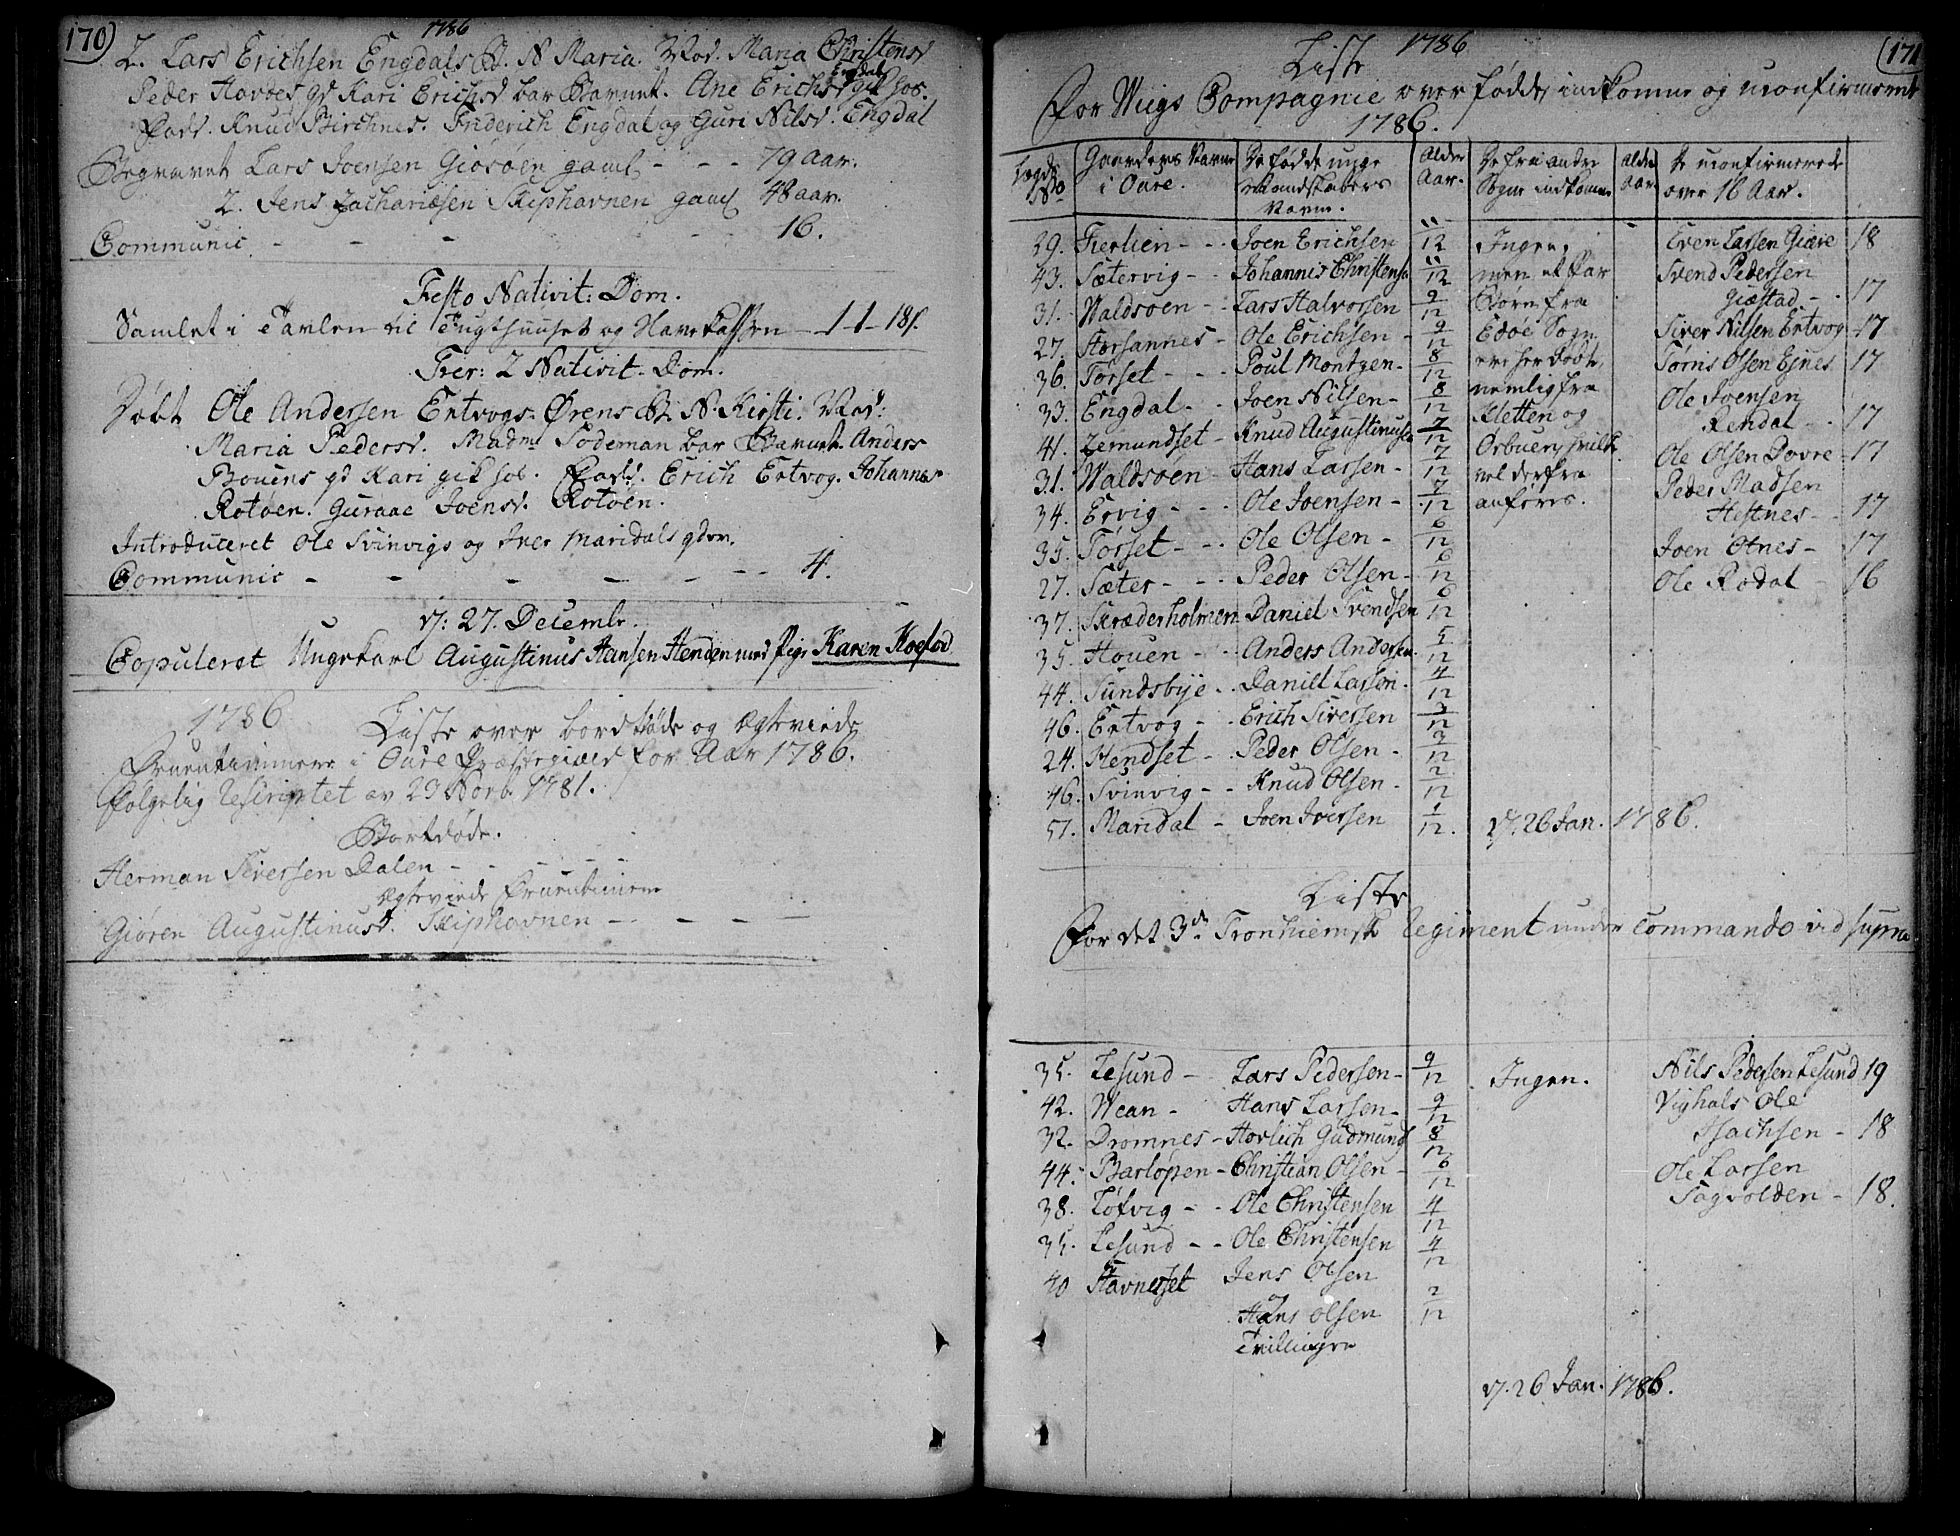 170)
1786
2. Lars Erichsen Engdals B. N. Maria. Mod. Maria Christensd
Peder Hovdes qv Kari Erichsd bar Barnet. Ane Erichsd Engdal gik hos.
Fadd. Knud Birchnes. Friderich Engdal og Guri Nilsd. Engdal
Begravet Lars Joensen Giosøen gaml - - - 79 aar.
2. Jens Zachariæsen Skiphavnen gaml 48 aar.
Communic - - - - 16.
Festo Nativit: Dom.
Samlet i Tavlen til Tugthuuset og Havekassen - 1-1-18 s.
Fer: 2 Nativit. Dom.
Døbt Ole Andersen Ertvogs-Ørens B. N. Kirsti. Mod:
Maria Pedersd. Madm Sodeman bar Barnet. Anders
Bouens qv Kari gik hos. Fadd. Erich Ertvog. Johannes
Rotøen. Guraae Joensd. Rotøen.
Introduceret Ole Svinvigs og Iver Maridals qdvr.
Communic - - - - - - 4.
d: 27. Decembr.
Copuleret Ungekarl Augustinus Hansen Henden med Pige Karen Koefod
1786 Liste over bortdøde og Ægteviede
Qvuentimmere i Oure Præstegiæld for Aar 1786.
følgelig Rescriptet av 29 Novb. 1781.
Bortdøde.
Herman Siversen Dalen - - - - -
Ægteviede Qvuentimmere
Giøren Augustinusd. Skiphavnen - - - -
171
Liste 1786
For Wiigs Compagnie over fødde, indkomne og uconfirmerede
1786.
Lægds No
Gaardens Navne i Oure.
De fødde unge Mandskabers Navne.
Alder Aar.
De fra andre Sogne indkomne
Alder Aar.
De uconfirmerede over 16 Aar.
29. Fierlien - - Joen Erichsen 11/12 Ingen, Even Larsen Giære 18
43. Sætervig - - Johannis Christensen 11/12 men et Par Svend Pedersen
31. Waldsøen - - Lars Halvorsen 9/12 Børn fra Giæstad - - 17
27. Aarsannes - Ole Erichsen - 9/12 Edøe Sogn Siver Nilsen Ertvog - 17
36. Torset - - - Poul Montzen - 8/12 ere her døbt, Tørris Olsen Ejnes 17
33. Engdal - - Joen Nilsen - 8/12 nemlig fra Ole Joensen
41. Zemundset - Knud Augustinusen 7/12 Kletten og Rendal - - 17
31. Waldsøen - Hans Larsen - 7/12 Ole Olsen Dovre - 17
34. Ervig - - - Ole Joensen - 7/12 vel derfra Peder Madsen
35. Torset - - - Ole Olsen - 6/12 anføres. Hestnes - - 17
27. Sæter - - - Peder Olsen - 6/12 Joen Otnes - 17
37. Skræderholmen Daniel Svendsen 6/12 Ole Rodal - 16
35. Houen - - - Anders Andersen. 5/12
44. Sundsbye - - Daniel Larsen - 4/12
46. Ertvog - - Erich Siversen 3/12
24. Hendset - - Peder Olsen - 3/12
46. Svinvig - - Knud Olsen - 2/12
51. Maridal - Joen Iversen 1/12. d. 26 Jan. 1786.
Liste
For det 3de Tronhiemske Regiment under Commando vid supra
35. Lesund - Lars Pedersen - 9/12 Ingen. Nils Pedersen Lesund 19
42. Wean - Hans Larsen - 9/12 Vighals Ole
32. Dromnes - Hovlich Gudmunds 8/12 Isachsen - 18
44. Barløpen - Christian Olsen - 6/12 Ole Larsen
38. Tøfvig - - Ole Christensen 4/12 Sagvolden - 18.
35. Lesund - - Ole Christensen 4/12
40 Stavneset Jens Olsen
og
Hans Olsen 2/12
Tvillinger
d. 26 Jan. 1786.